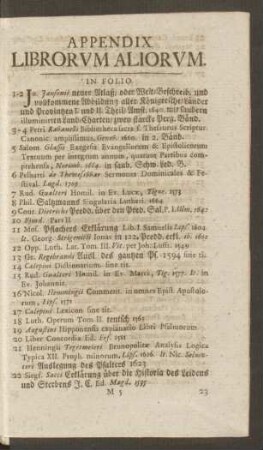 APPENDIX
LIBRORVM ALIORVM.
IN FOLIO.
1-2 Jo. Jansonii neuer Atlaß: oder Welt-Beschreib. und
vollkommene Abbildung aller Königreiche, Länder
und Provintzen I. und II. Theil Amst. 1640. mit saubern
illuminirten Land-Charten, zwey starcke Perg. Bänd.
3-4 Petri Ravanelli Bibliotheca sacra s. Thesaurus Scriptur.
Canonic. amplissimus, Genev. 1660. in 2. Bänd.
5 Salom Glassii Exegesis Evangeliorum & Epistolarum
Textuum per integrum annum, quatuor Partibus comprehensa,
Pelbarti de Themeswar Sermones Dominicales & Festival.
7 Rud. Gualteri Homil. in Ev. Lucæ, Tigur. 1573
8 Phil. Saltzmanns Singularia Lutheri. 1664
9 Conr. Dieterichs Predd. über den Pred. Sal. P. I. Ulm. 1642
10 Ejusd. Part II
11 Mos. Pflachers Erklärung Lib. I Samuelis Lips. 1604
It. Georg. Strigenitii Jonas in 122. Predd. erkl. ib. 1602
12 Opp. Luth. Lat. Tom. III. Vit. per Joh. Lufft. 1549
13 Ge. Regelmanns Ausl. des gantzen Ps. 1594 sine tit.
14 Calepini Dictionarium. sine tit.
15 Rud. Gualteri Homil. in Ev. Marci, Tig. 1577. It. in
Ev. Johannis.
16 Nicol. Hemmingii Comment. in omnes Epist. Apostolicorum,
17 Calepini Lexicon sine tit.
18 Luth. Operum Tom. II. teutsch 1563
19 Augustini Hipponensis explanatio Libri Psalmorum.
20 Liber Concordiæ Ed. 1581
21 Henningii Tegetmeieri Brunopolitæ Analysis Logica
Typica XII. Proph. minorum, Lips. 1606. It. Nic.
Auslegung des Psalters 1623
22 Siegf. Sacci Erklärung über die Historia des Leidens
und Sterbens J. C. Ed. Magd.
M 5 23